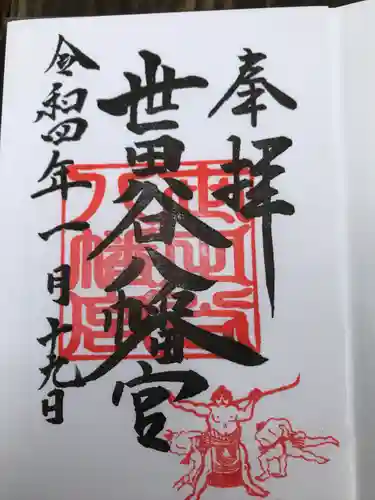 奉拝
世田谷八幡宮
令和四年一月十九日